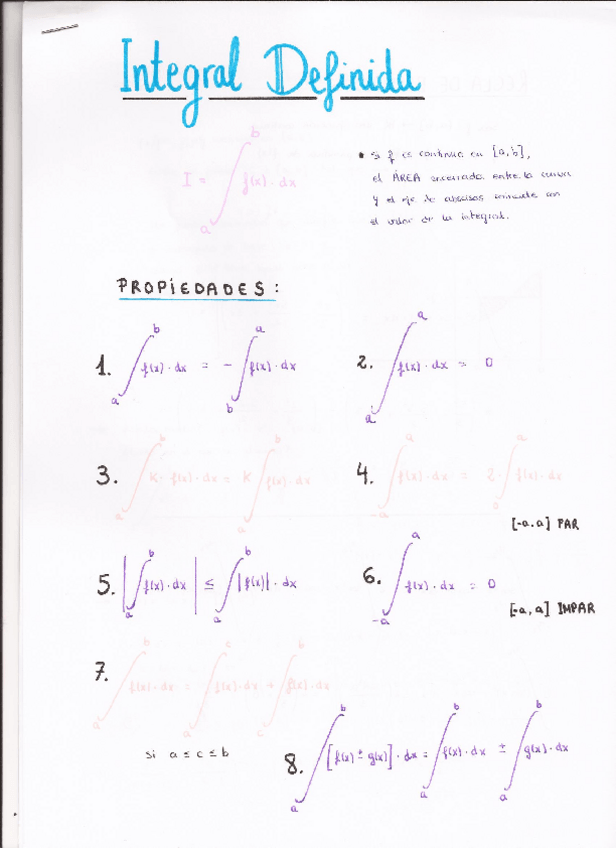 Integral Definida
I = ∫_a^b f(x)·dx
• Si f es continua en [a,b],
el ÁREA encerrada entre la curva
y el eje de abscisas coincide con
el valor de la integral.
PROPIEDADES:
1. ∫_a^b f(x)·dx = - ∫_b^a f(x)·dx
2. ∫_a^a f(x)·dx = 0
3. ∫_a^b K·f(x)·dx = K ∫_a^b f(x)·dx
4. ∫_-a^a f(x)·dx = 2·∫_0^a f(x)·dx
[-a,a] PAR
5. |∫_a^b f(x)·dx| ≤ ∫_a^b |f(x)|·dx
6. ∫_-a^a f(x)·dx = 0
[-a,a] IMPAR
7. ∫_a^b f(x)·dx = ∫_a^c f(x)·dx + ∫_c^b f(x)·dx
si a ≤ c ≤ b
8. ∫_a^b [f(x) ± g(x)]·dx = ∫_a^b f(x)·dx ± ∫_a^b g(x)·dx